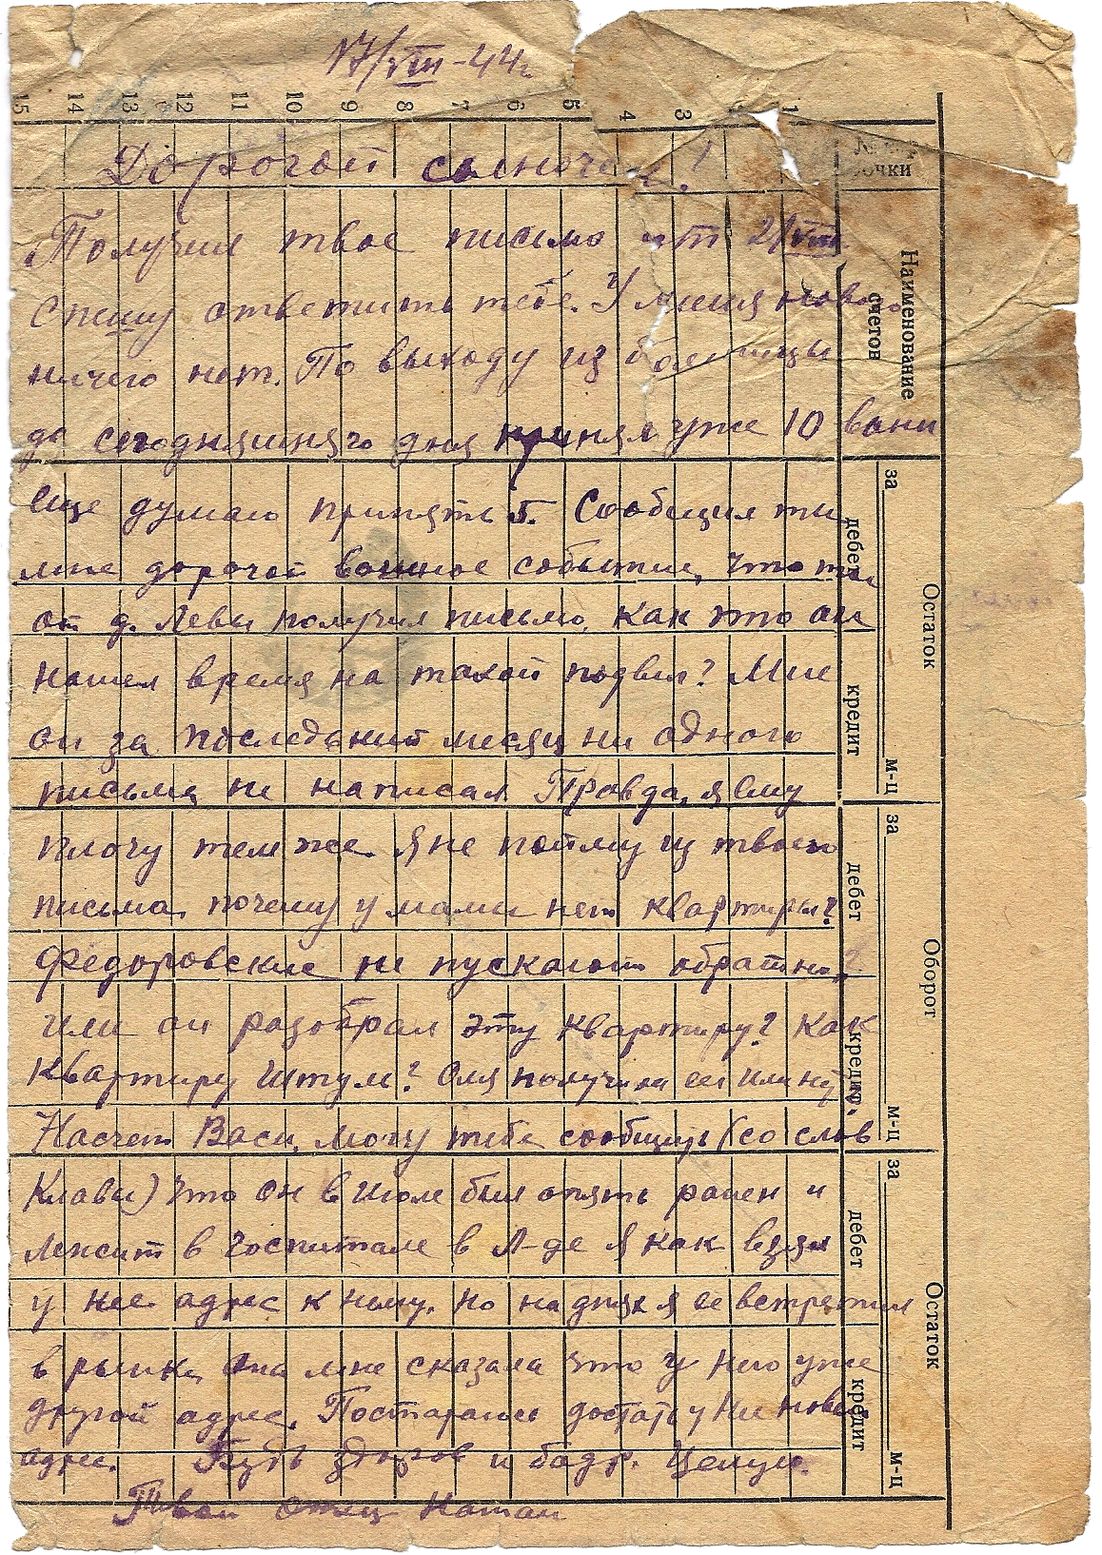 17/VIII-44г.
15 14 13 12 11 10 9 8 7 6 5 4 3 1
Дорогой сыночек!
Получил твое письмо от 2/VIII
спешу ответить тебе. У меня нового
ничего нет. По выходу из больницы
до сегодняшняго дня принял уже 10 ванн
еще думаю принять 5. Сообщил ты
мне дорогой важное событие, что ты
от д. Левы получил письмо. Как это он
нашел время на такой подвиг? Мне
он за последний месяц ни одного
письма не написал. Правда, я ему
плачу тем же. Я не пойму из твоего
письма, почему у мамы нет квартиры?
Федоровские не пускают обратно?
Или он разобрал эту квартиру? Как
квартиру Штум? Оля получила ее или нет.
Насчет Васи, могу тебе сообщить (со слов
Клавы) что он в июле был опять ранен и
лежит в госпитале в Л-де Я как взял
у нее адрес к нему. Но на днях я ее встретил
в рынке, она мне сказала что у него уже
другой адрес. Постараюсь достать у нее новый
адрес. Будь здоров и бодр. Целую.
Твой отец Натан
очки
Наименование
счетов
за м-ц
Остаток
дебет
кредит
за м-ц
Оборот
дебет
кредит
за м-ц
Остаток
дебет
кредит